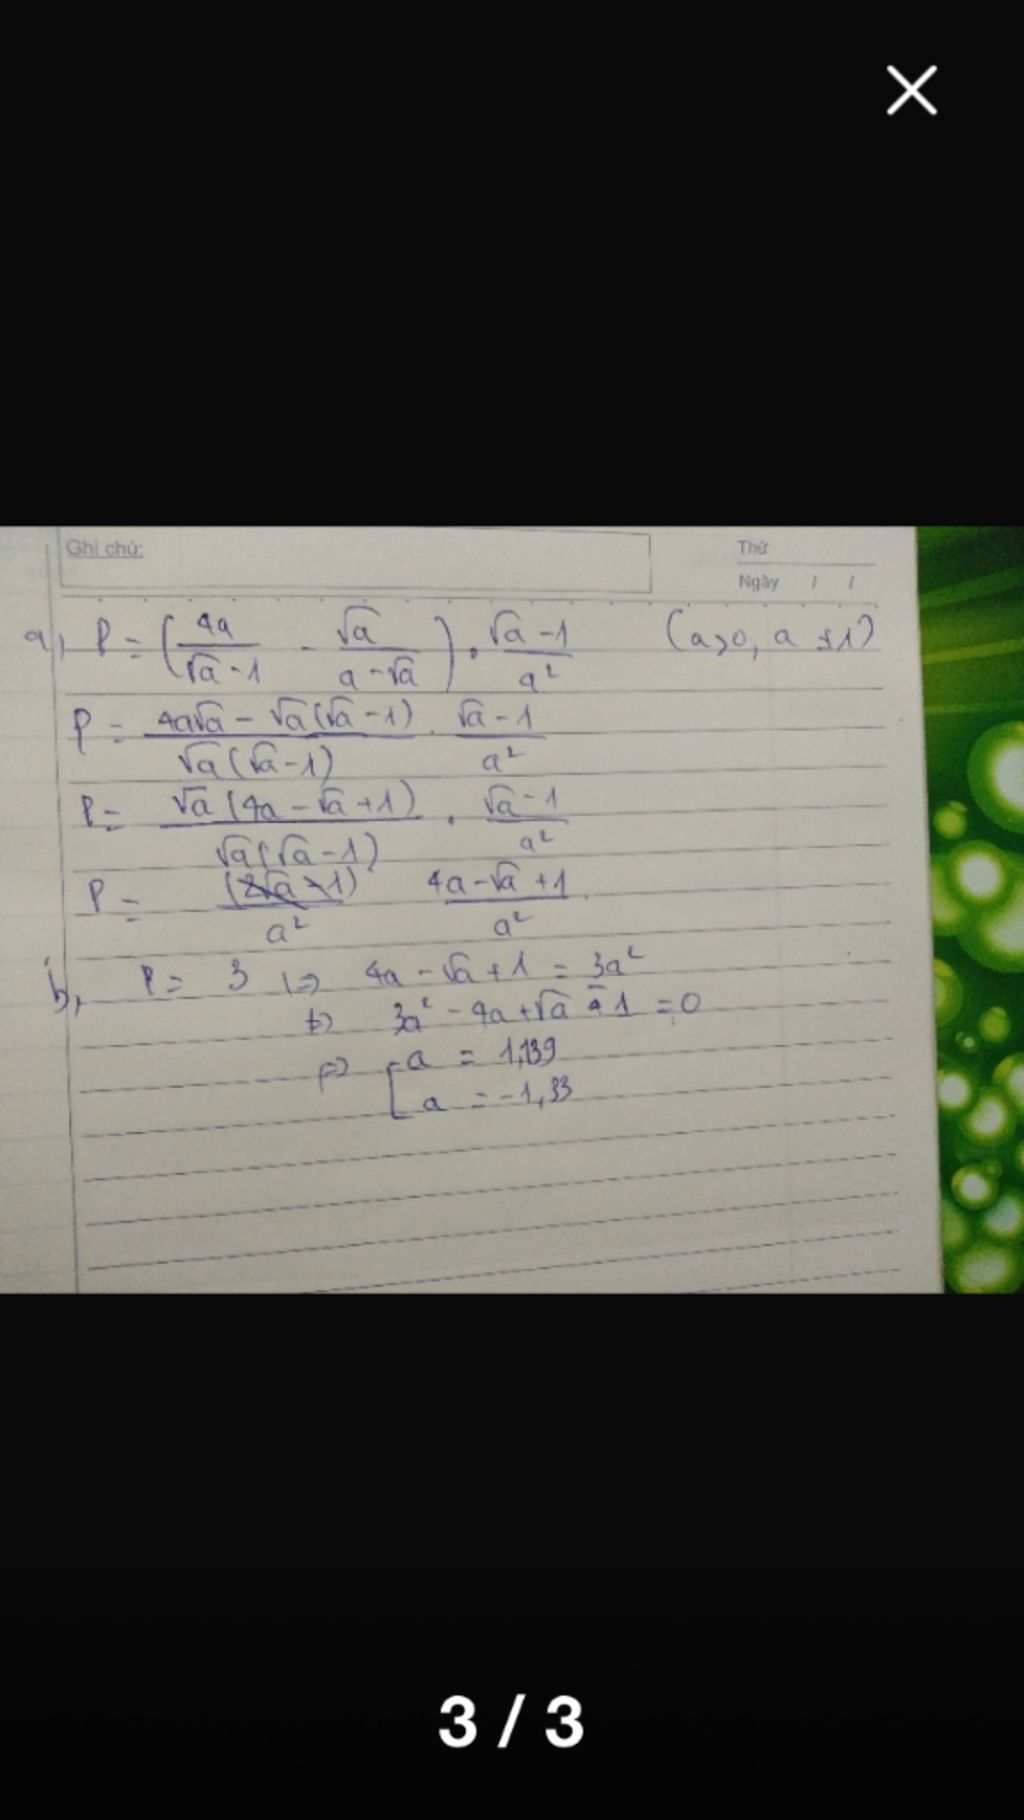 Ghi chú:
Thứ
Ngày / /
a, P = (4a/(√a - 1) - √a/(a - √a)) . (√a - 1)/a² (a>0, a ≠ 1)
P = (4a√a - √a(√a - 1))/(√a(√a - 1)) . (√a - 1)/a²
P = (√a(4a - √a + 1))/(√a(√a - 1)) . (√a - 1)/a²
P = (2√a - 1)/a² (4a - √a + 1)/a²
b, P = 3 <=> 4a - √a + 1 = 3a²
<=> 3a² - 4a + √a - 1 = 0
<=> [ a = 1,139
a = -1,33
3 / 3